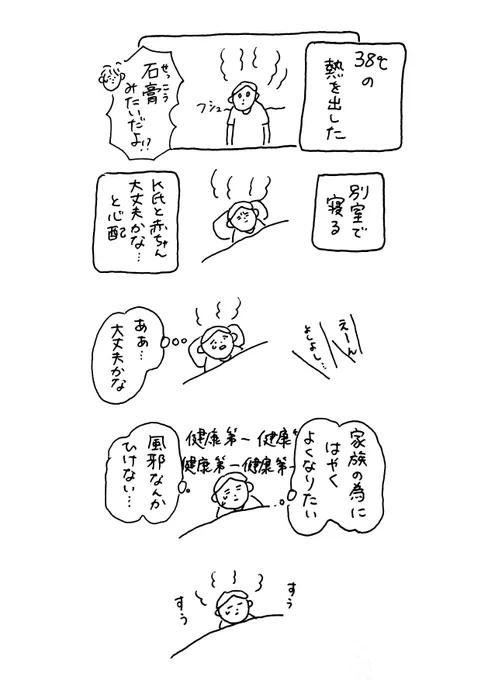 38℃の
熱を出した
フシュー
せっこう
石膏
みたいだよ!?
別室で
寝る
K氏と赤ちゃん
大丈夫かな…
と心配
えーん
よしよし…
ああ…
大丈夫かな
家族の為に
はやく
よくなりたい
健康第一 健康第
健康第一健康第一
風邪なんか
ひけない…
すう
すう